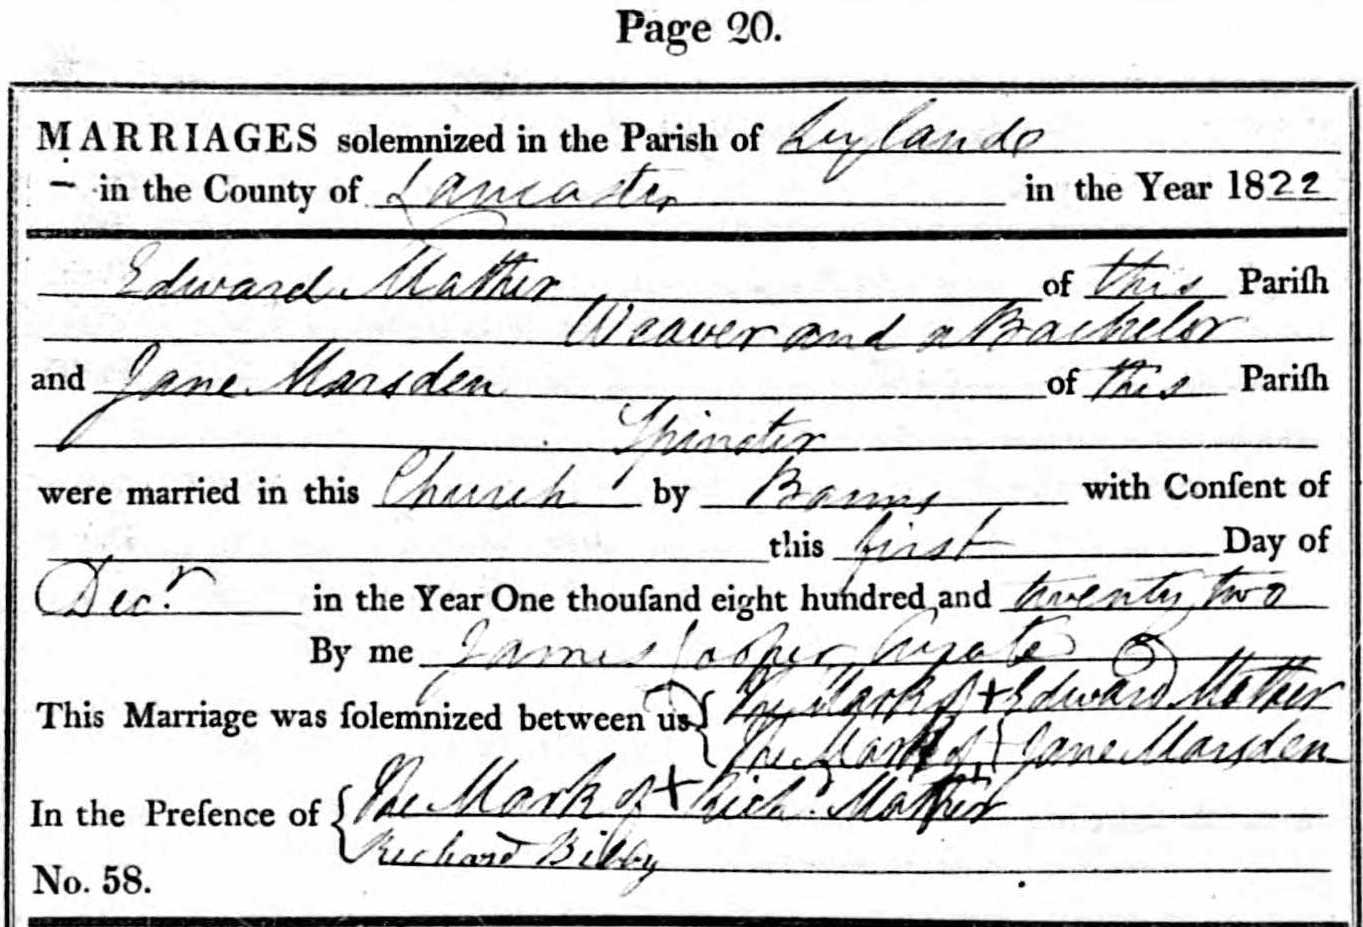 Page 20.
MARRIAGES solemnized in the Parish of Leylande
- in the County of Lancaster in the Year 1822
Edward Mather of this Pariſh
Weaver and a Bachelor
and Jane Marsden of this Pariſh
Spinster
were married in this Church by Banns with Conſent of
this first Day of
Decr. in the Year One thouſand eight hundred and twenty two
By me James Cooper Curate
This Marriage was ſolemnized between us { The Mark of + Edward Mather
The Mark of + Jane Marsden
In the Preſence of { The Mark of + Richd. Mather
Richard Bibby
No. 58.